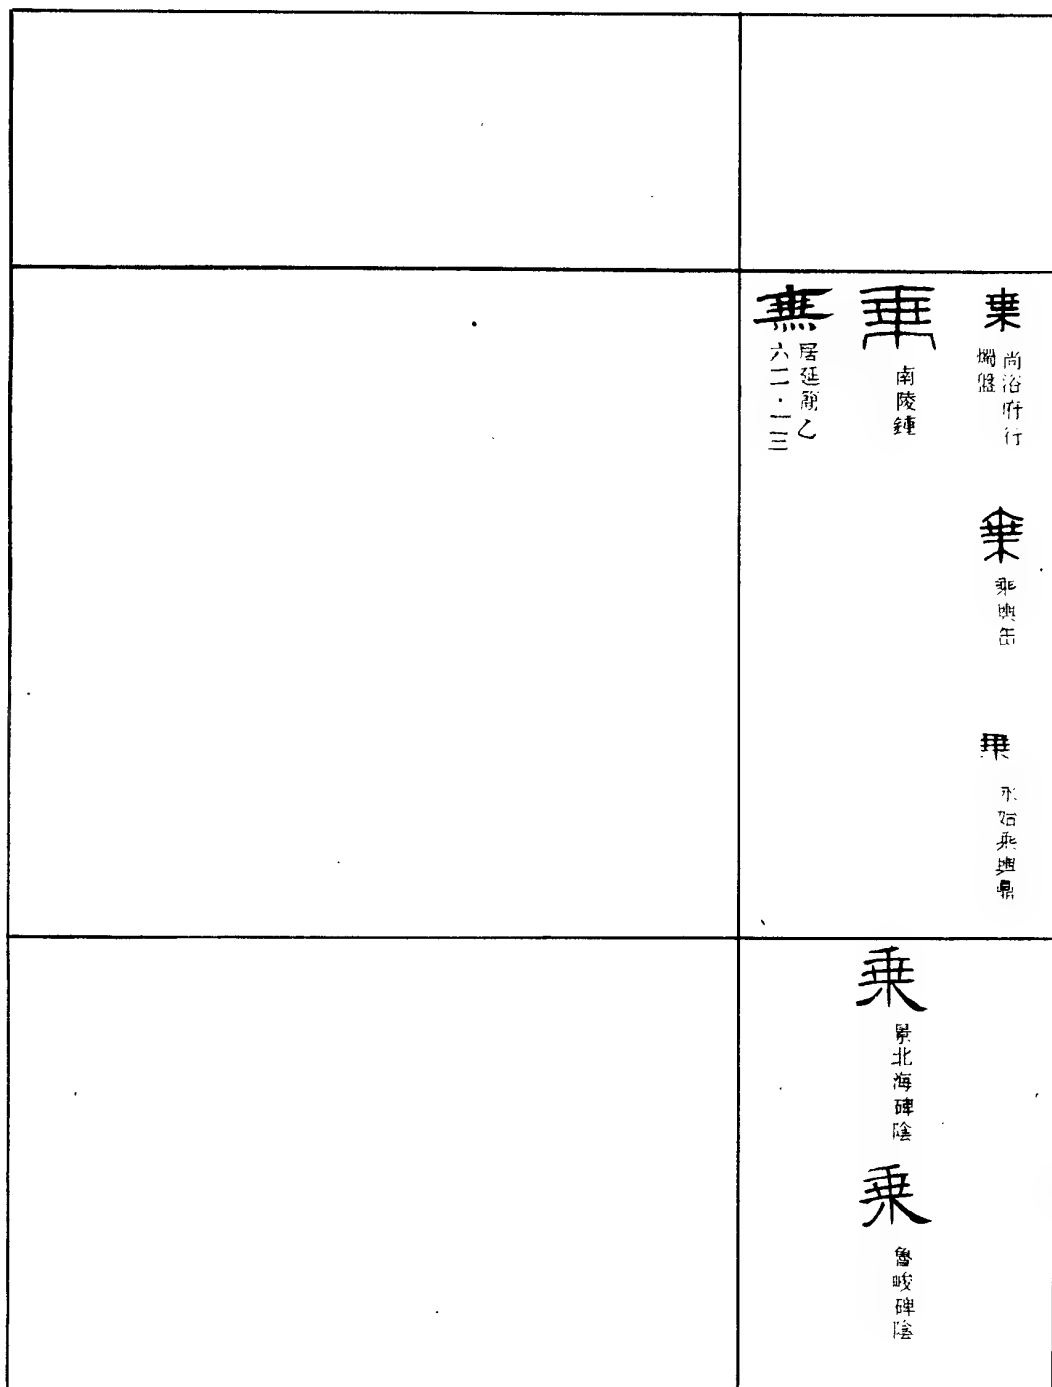 乗
尚浴府行
燭盤
乗
乘輿缶
乗
永始乘輿鼎
乗
南陵鍾
乗
居延簡乙
六二·一三
乗
景北海碑陰
乗
魯峻碑陰